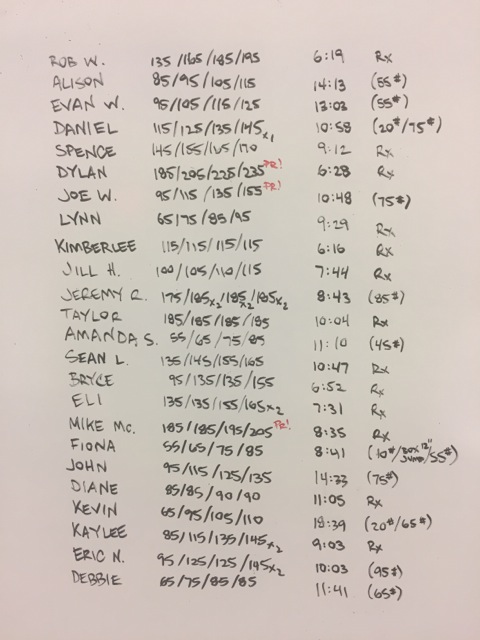 ROB W. 135/165/185/195 6:19 Rx
ALISON 85/95/105/115 14:13 (55#)
EVAN W. 95/105/115/125 13:03 (55#)
DANIEL 115/125/135/145x1 10:58 (20#/75#)
SPENCE 145/155/165/170 9:12 Rx
DYLAN 185/205/225/235 PR! 6:28 Rx
JOE W. 95/115/135/155 PR! 10:48 (75#)
LYNN 65/75/85/95 9:29 Rx
KIMBERLEE 115/115/115/115 6:16 Rx
JILL H. 100/105/110/115 7:44 Rx
JEREMY R. 175/185x2/185x2/185x2 8:43 (85#)
TAYLOR 185/185/185/185 10:04 Rx
AMANDA S. 55/65/75/85 11:10 (45#)
SEAN L. 135/145/155/165 10:47 Rx
BRYCE 95/135/135/155 6:52 Rx
ELI 135/135/155/165x2 7:31 Rx
MIKE MC. 185/185/195/205 PR! 8:35 Rx
FIONA 55/65/75/85 8:41 (10#/BOX JUMP 12"/55#)
JOHN 95/115/125/135 14:33 (75#)
DIANE 85/85/90/90 11:05 Rx
KEVIN 65/95/105/110 18:39 (20#/65#)
KAYLEE 85/115/135/145x2 9:03 Rx
ERIC N. 95/125/125/145x2 10:03 (95#)
DEBBIE 65/75/85/85 11:41 (65#)